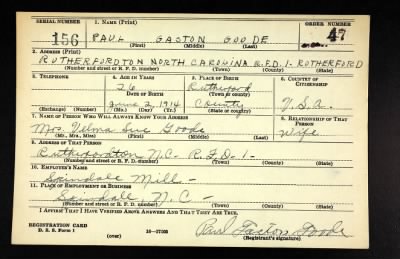 SERIAL NUMBER 1. NAME (Print) ORDER NUMBER
156 PAUL GASTON GOODE 47
(First) (Middle) (Last)
2. ADDRESS (Print)
RUTHERFORDTON NORTH CAROLINA R.F.D. 1- RUTHERFORD
(Number and street or R. F. D. number) (Town) (County) (State)
3. TELEPHONE 4. AGE IN YEARS 5. PLACE OF BIRTH 6. COUNTRY OF CITIZENSHIP
26 Rutherford
DATE OF BIRTH (Town or county)
June 2, 1914 County U.S.A.
(Exchange) (Number) (Mo.) (Day) (Yr.) (State or country)
7. NAME OF PERSON WHO WILL ALWAYS KNOW YOUR ADDRESS 8. RELATIONSHIP OF THAT PERSON
Mrs. Velma Sue Goode Wife
(Mr., Mrs., Miss) (First) (Middle) (Last)
9. ADDRESS OF THAT PERSON
Rutherfordton N.C. R.F.D. 1-
(Number and street or R. F. D. number) (Town) (County) (State)
10. EMPLOYER'S NAME
Spindale Mill-
11. PLACE OF EMPLOYMENT OR BUSINESS
Spindale N.C.-
(Number and street or R. F. D. number) (Town) (County) (State)
I AFFIRM THAT I HAVE VERIFIED ABOVE ANSWERS AND THAT THEY ARE TRUE.
REGISTRATION CARD
D. S. S. Form 1 (over) 16-17105 Paul Gaston Goode
(Registrant's signature)